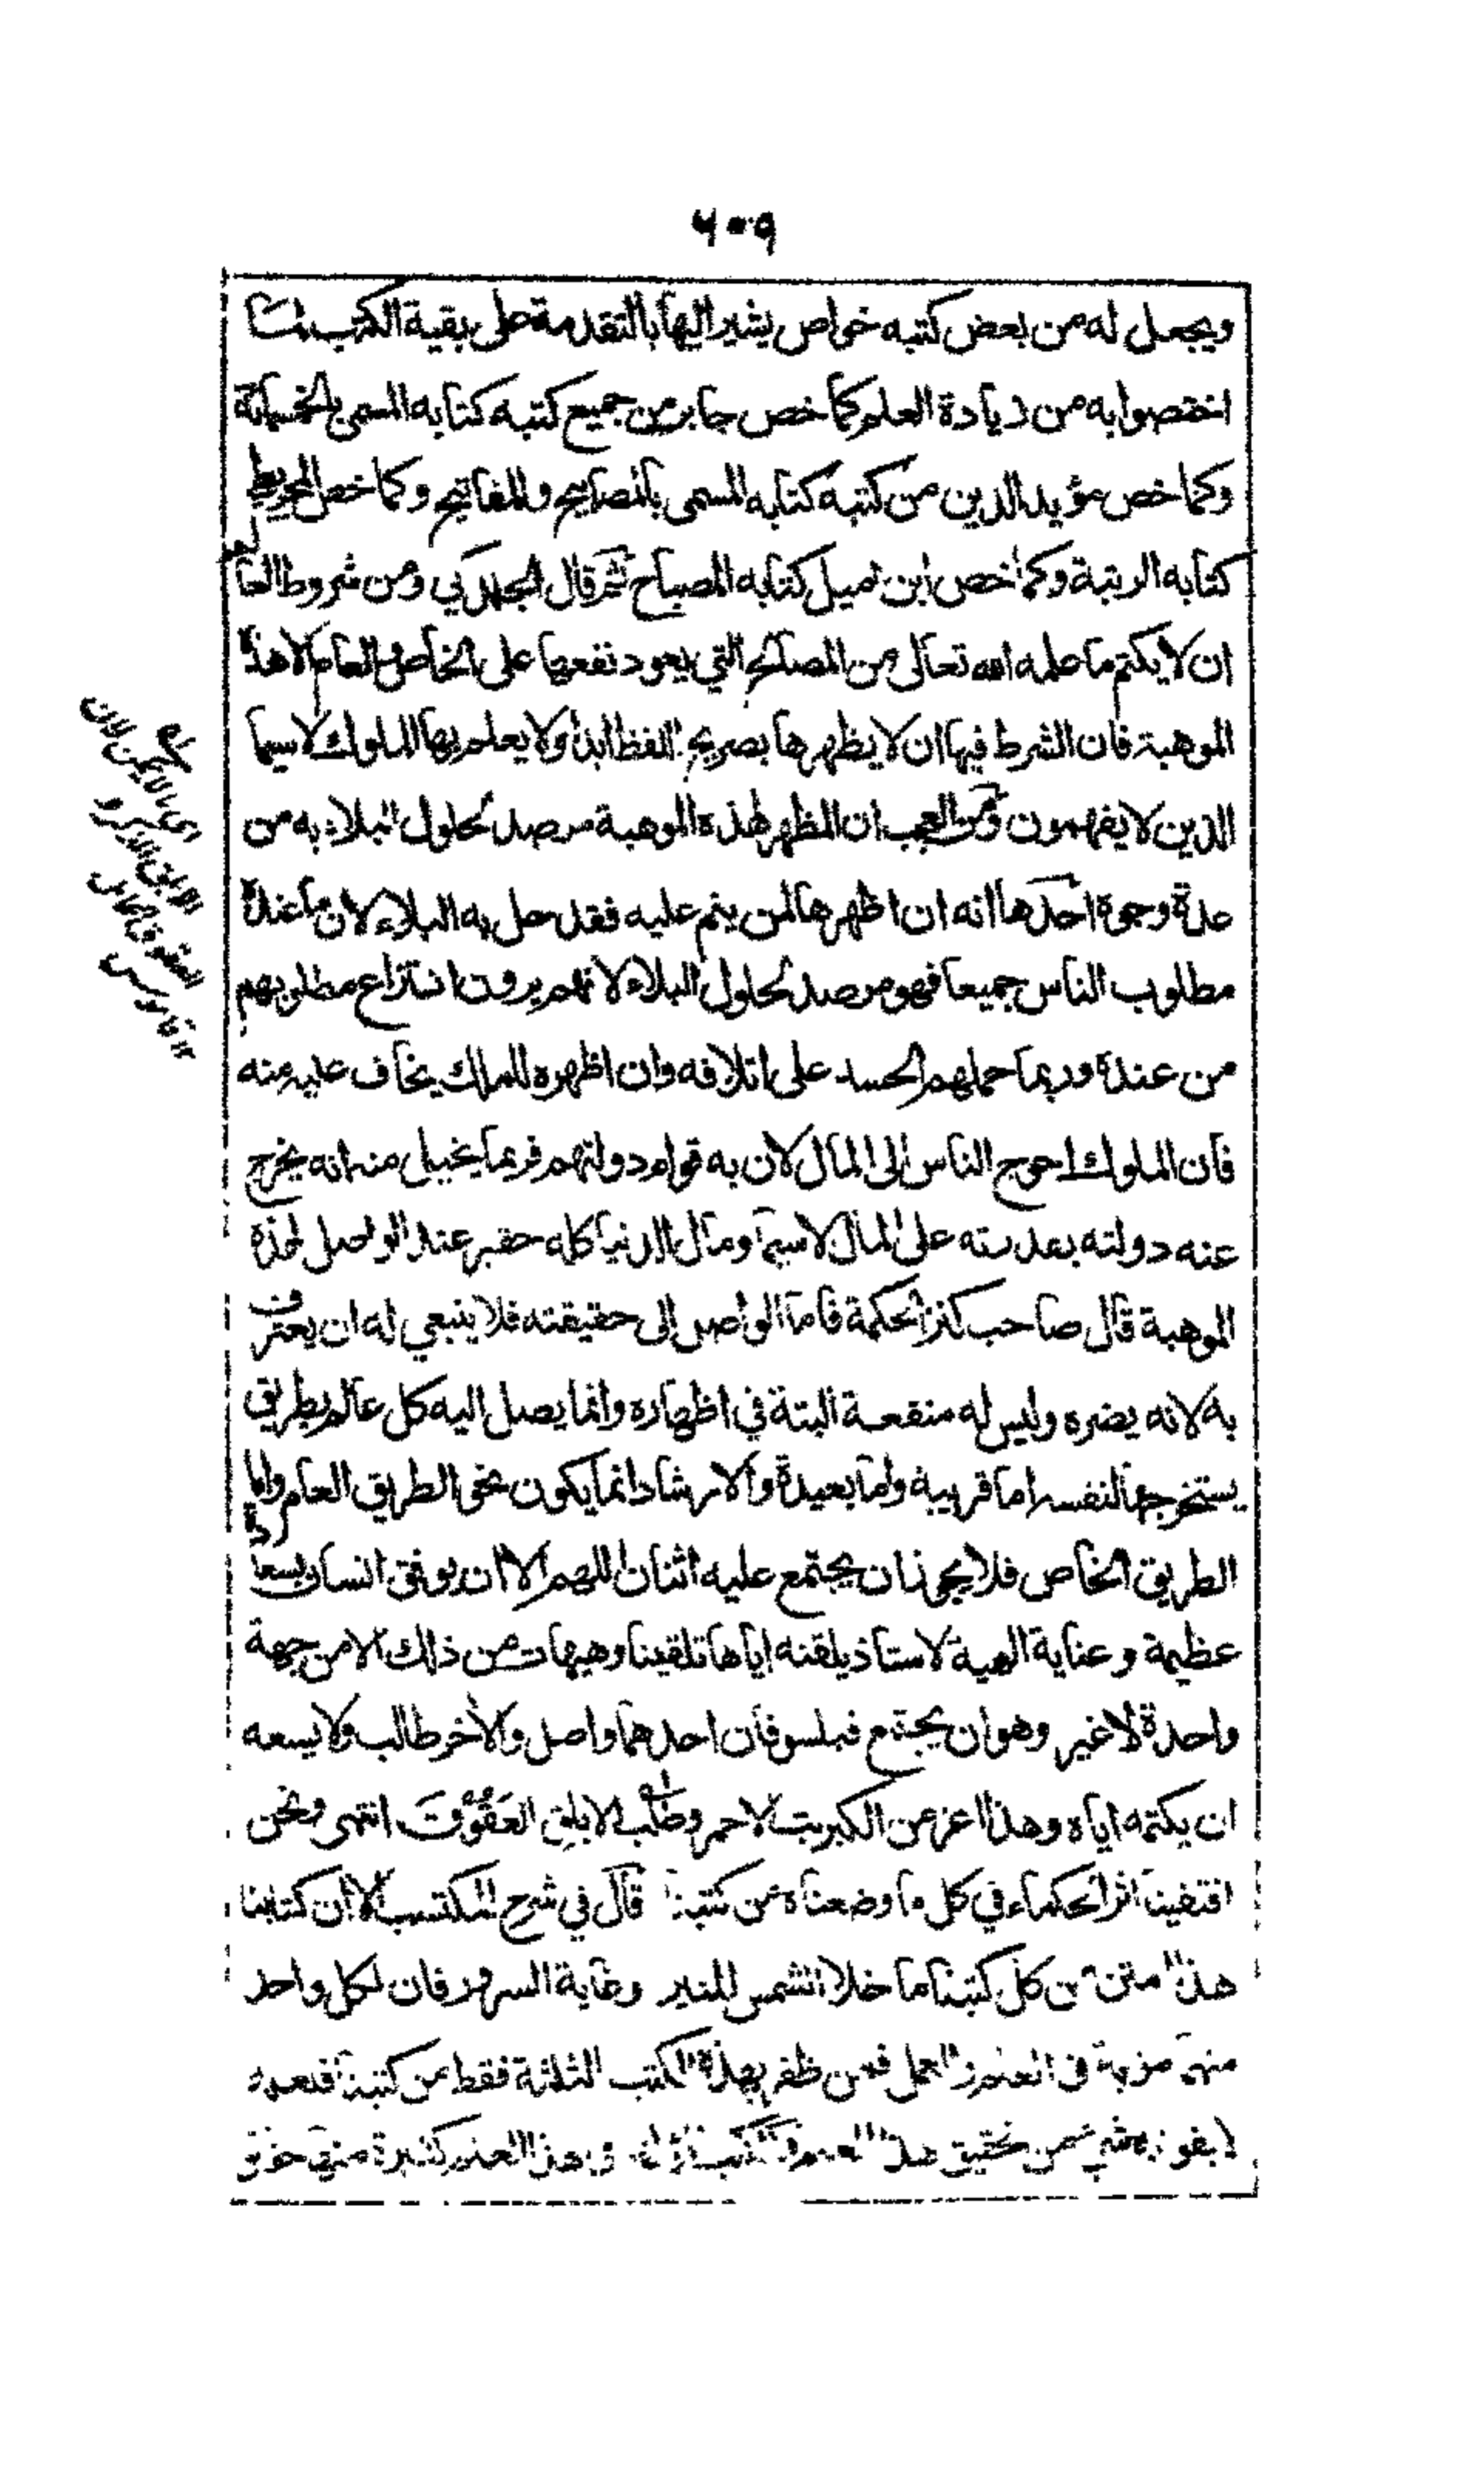 ٦٠٩
ويجعل له من بعض كتبه خواص يشير اليها بالتقدمة على بقية الكتب لما
اختصوا به من زيادة العلم كما خص جابر من جميع كتبه كتابه المسمى بالخمسمائة
وكما خص مؤيد الدين من كتبه كتابه المسمى بالمصابيح والمفاتيح وكما خص المجريطي
كتابه الرتبة وكما خص ابن اميل كتابه المصباح ثم قال الجلدكي ومن شروط العالم
ان لا يكتم ما علمه الله تعالى من المصالح التي يعود نفعها على الخاص والعام الا هذه
الموهبة فان الشرط فيها ان لا يظهرها بصريح اللفظ ابدا ولا يعلم بها الملوك لا سيما
الذين لا يفهمون ومن العجب ان المظهر لهذه الموهبة مرصد لحلول البلاء به من
عدة وجوه احدها انه ان اظهرها لمن ينم عليه فقد حل به البلاء لان ما عنده
مطلوب الناس جميعا فهو مرصد لحلول البلاء لانهم يرون انتزاع مطلوبهم
من عنده وربما حملهم الحسد على اتلافه وان اظهره للملك يخاف عليه منه
فان الملوك احوج الناس الى المال لان به قوام دولتهم فربما يخيل منه انه يخرج
عنه دولته بقدرته على المال لا سيما ومال الدنيا كله حقير عند الواصل لهذه
الموهبة قال صاحب كنز الحكمة فاما الواصل الى حقيقته فلا ينبغي له ان يعترف
به لانه يضره وليس له منفعة البتة في اظهاره وانما يصل اليه كل عالم بطريق
يستخرجها لنفسه اما قريبة واما بعيدة والارشاد انما يكون نحو الطريق العام واما
الطريق الخاص فلا يجوز ان يجتمع عليه اثنان اللهم الا ان يوفق انسان بسعادة
عظيمة وعناية الهية لاستاذ يلقنه اياها تلقينا وهيهات من ذلك الا من جهة
واحدة لا غير وهو ان يجتمع فيلسوفان احدهما واصل والآخر طالب ولا يسعه
ان يكتمه اياه وهذا اعز من الكبريت الاحمر وطلب الابلق العَقُوْقَ انتهى ونحن
اقتفينا اثر الحكماء في كل ما وضعناه من كتبنا قال في شرح المكتسب الا ان كتابنا
هذا امتن من كل كتبنا ما خلا الشمس المنير وغاية السرور فان لكل واحد
منها مزية في العلم والعمل فمن ظفر بهذه الكتب الثلاثة فقط من كتبنا فلعله
لا يفوته شيء من تحقيق هذا العلم والكتب المؤلفة في هذا العلم كثيرة منها حقائق